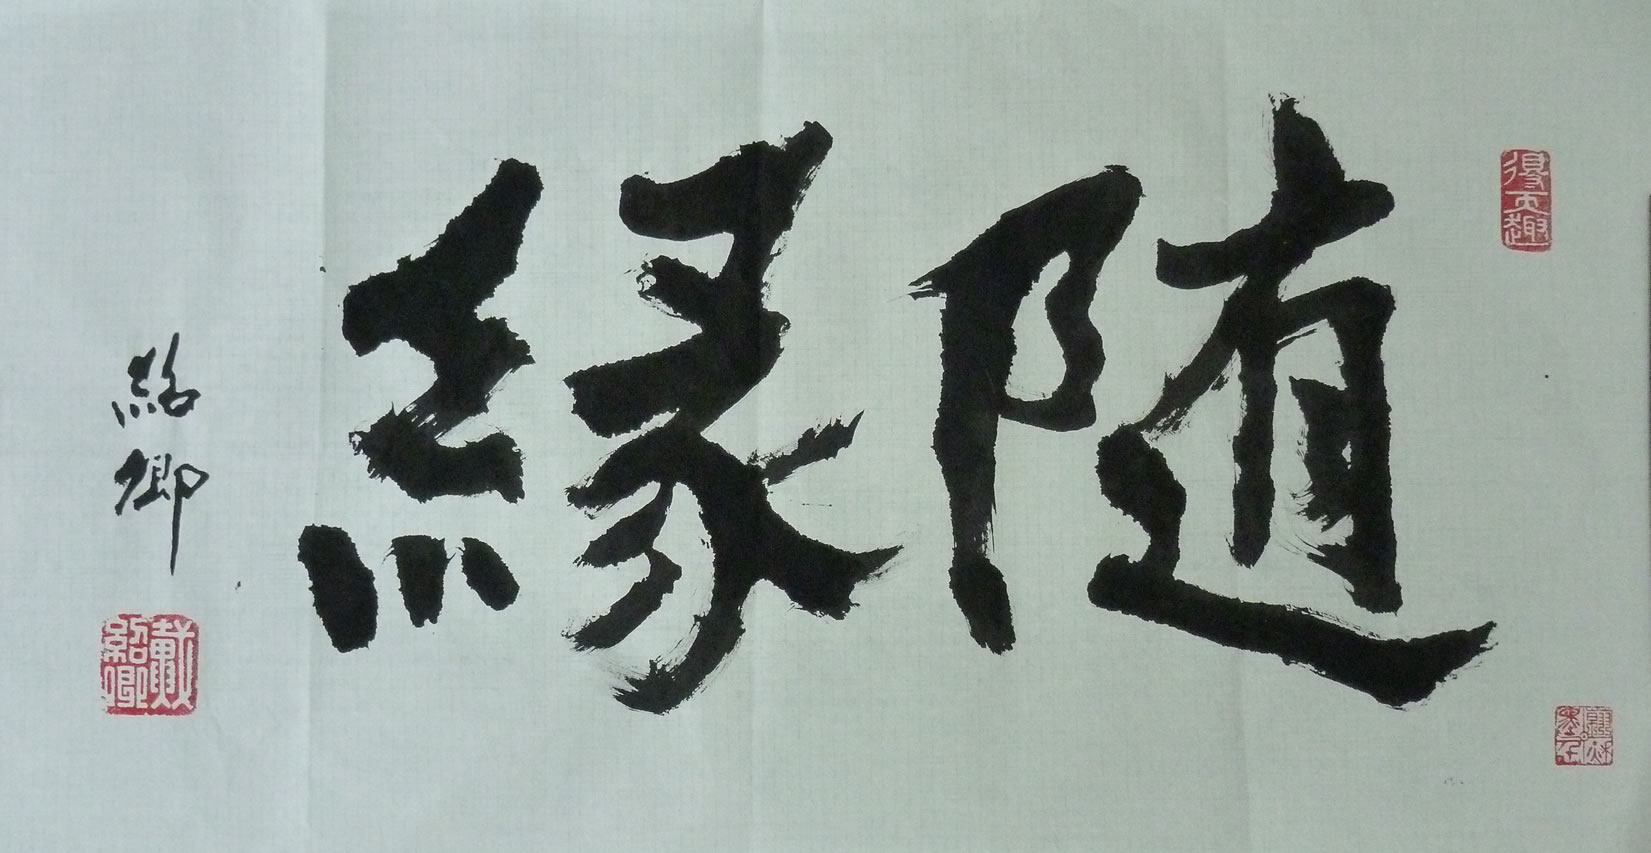 得天趣
随緣
紹卿
戴紹卿